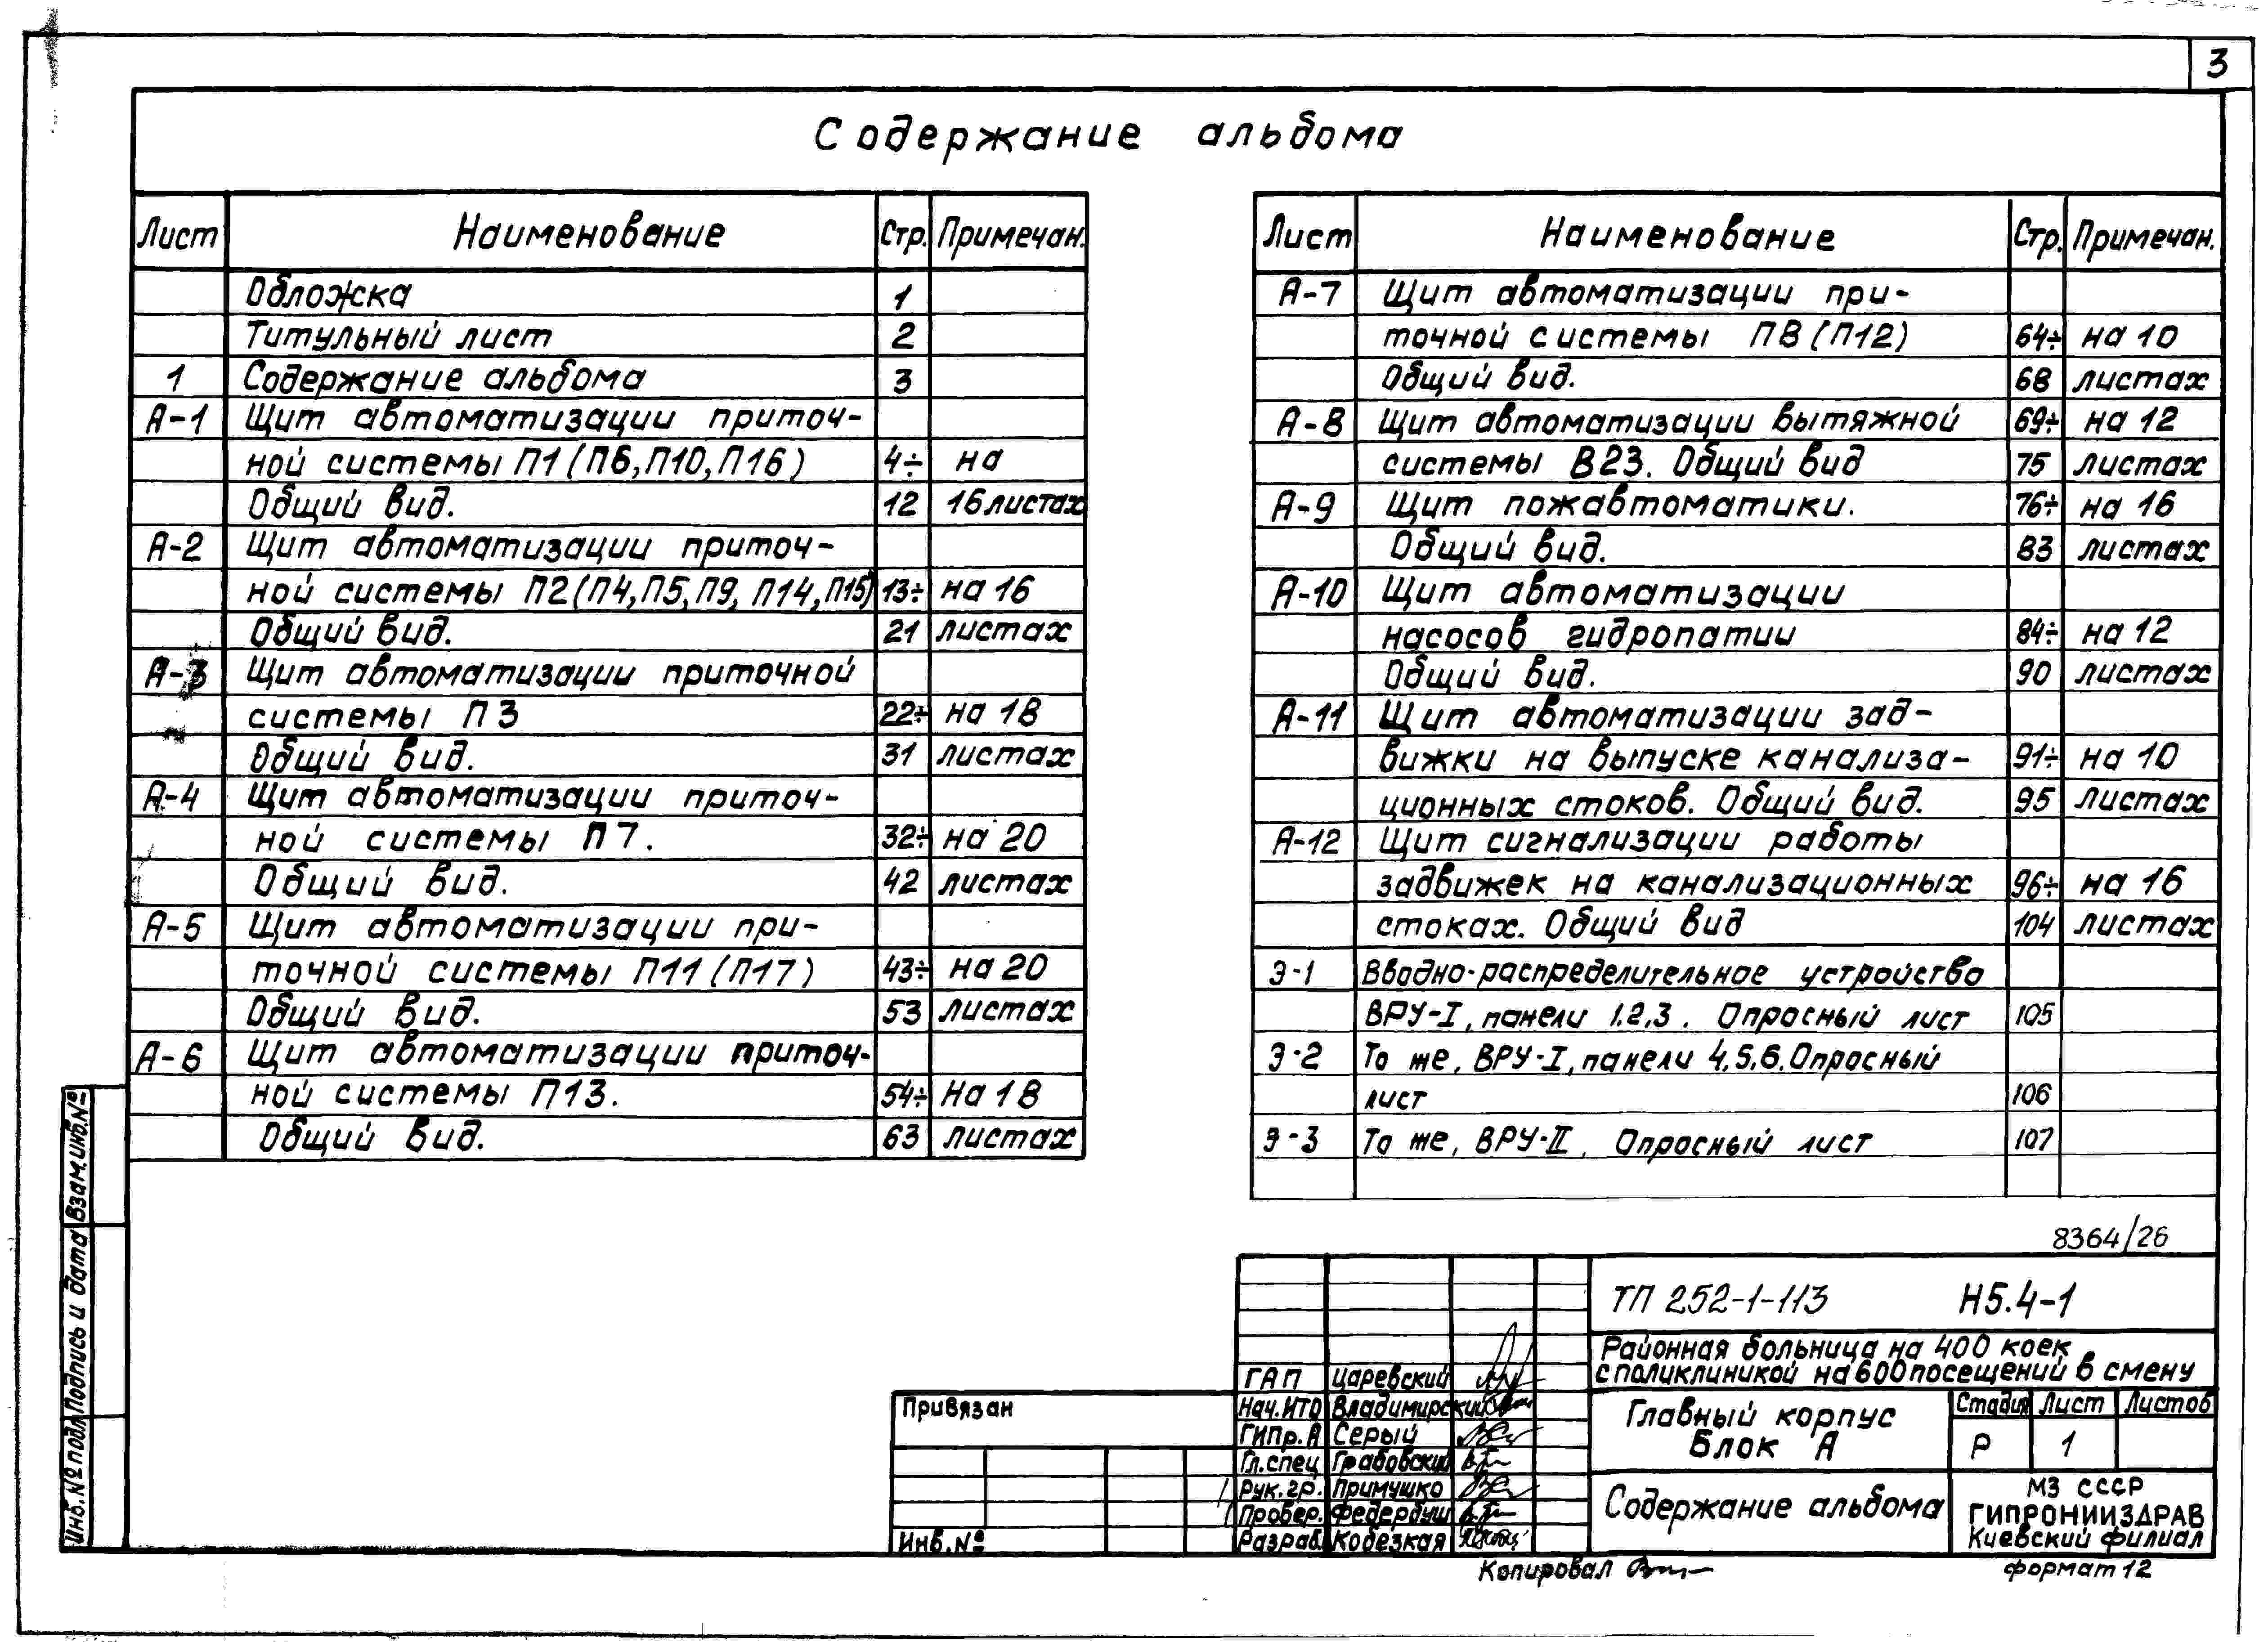 3
Содержание альбома
Лист Наименование Стр. Примечан.
Обложка 1
Титульный лист 2
1 Содержание альбома 3
А-1 Щит автоматизации приточ-
ной системы П1 (П6, П10, П16) 4÷ на
Общий вид. 12 16 листах
А-2 Щит автоматизации приточ-
ной системы П2 (П4, П5, П9, П14, П15) 13÷ на 16
Общий вид. 21 листах
А-3 Щит автоматизации приточной
системы П3 22÷ на 18
Общий вид. 31 листах
А-4 Щит автоматизации приточ-
ной системы П7. 32÷ на 20
Общий вид. 42 листах
А-5 Щит автоматизации при-
точной системы П11 (П17) 43÷ на 20
Общий вид. 53 листах
А-6 Щит автоматизации приточ-
ной системы П13. 54÷ На 18
Общий вид. 63 листах
Лист Наименование Стр. Примечан.
А-7 Щит автоматизации при-
точной системы П8 (П12) 64÷ на 10
Общий вид. 68 листах
А-8 Щит автоматизации вытяжной 69÷ на 12
системы В23. Общий вид 75 листах
А-9 Щит пожавтоматики. 76÷ на 16
Общий вид. 83 листах
А-10 Щит автоматизации
насосов гидропатии 84÷ на 12
Общий вид. 90 листах
А-11 Щит автоматизации зад-
вижки на выпуске канализа- 91÷ на 10
ционных стоков. Общий вид. 95 листах
А-12 Щит сигнализации работы
задвижек на канализационных 96÷ на 16
стоках. Общий вид 104 листах
Э-1 Вводно-распределительное устройство
ВРУ-I, панели 1.2,3. Опросный лист 105
Э-2 То же, ВРУ-I, панели 4,5,6. Опросный
лист 106
Э-3 То же, ВРУ-II, Опросный лист 107
8364/26
ТП 252-1-113 Н5.4-1
Районная больница на 400 коек
с поликлиникой на 600 посещений в смену
Главный корпус
Блок А
Стадия Лист Листов
Р 1
Содержание альбома
МЗ СССР
ГИПРОНИИЗДРАВ
Киевский филиал
ГАП Царевский
Нач. ИТО Владимирский
ГИПр. А Серый
Гл. спец Грабовский
Рук. гр. Примушко
Провер. Федербуш
Разраб. Кобезкая
Привязан
Инв. №
Копировал
формат 12
Взам. инв. №
Подпись и дата
Инв. № подл